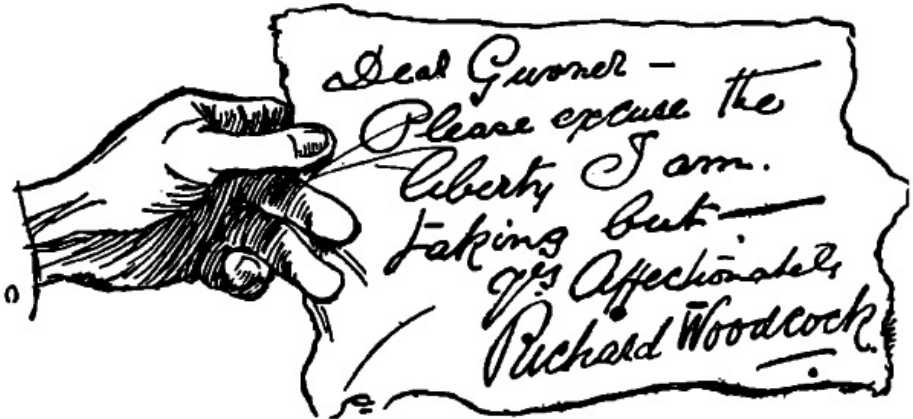 Dear Guvner —
Please excuse the
liberty I am.
taking but —
Yrs Affectionately
Richard Woodcock.